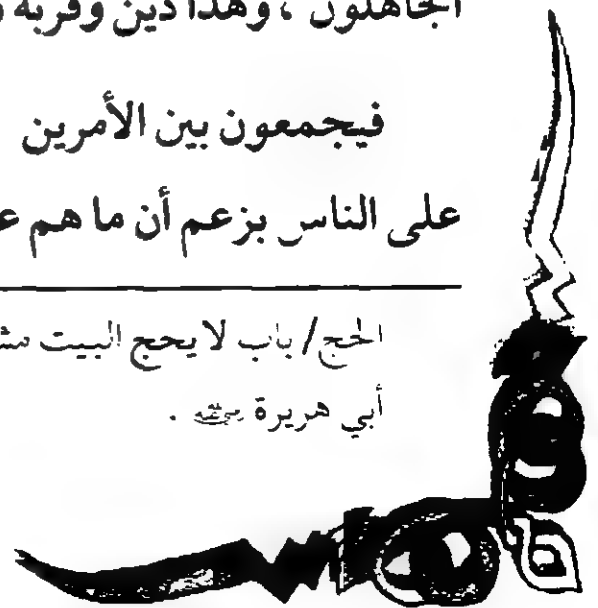 الجاهلون ، وهذا دين وقربة
فيجمعون بين الأمرين
على الناس بزعم أن ما هم
الحج/ باب لا يحج البيت
أبي هريرة رضي الله عنه .